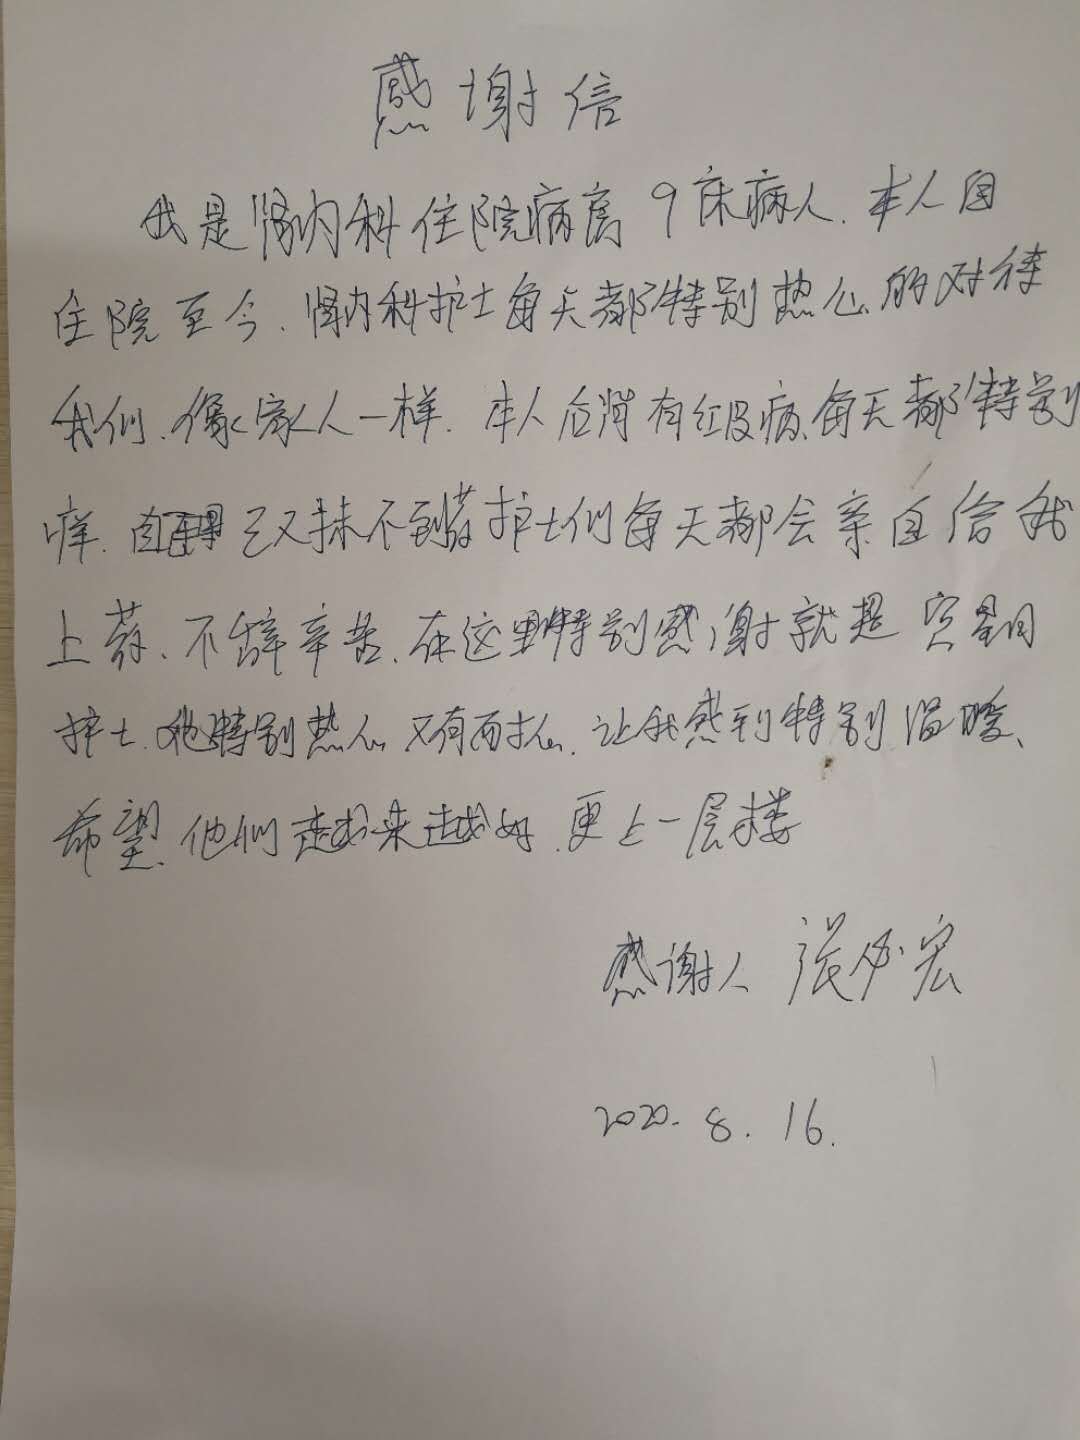 感谢信
我是肾内科住院病房9床病人.本人因
住院至今.肾内科护士每天都特别热心的对待
我们.像家人一样.本人后背有红皮病.每天都特别
痒.自己又抹不到药护士们每天都会亲自给我
上药.不辞辛苦.在这里特别感谢就是
护士.她特别热心又有耐心.让我感到特别温暖、
希望.他们越来越好.更上一层楼
感谢人 张必宏
2020.8.16.